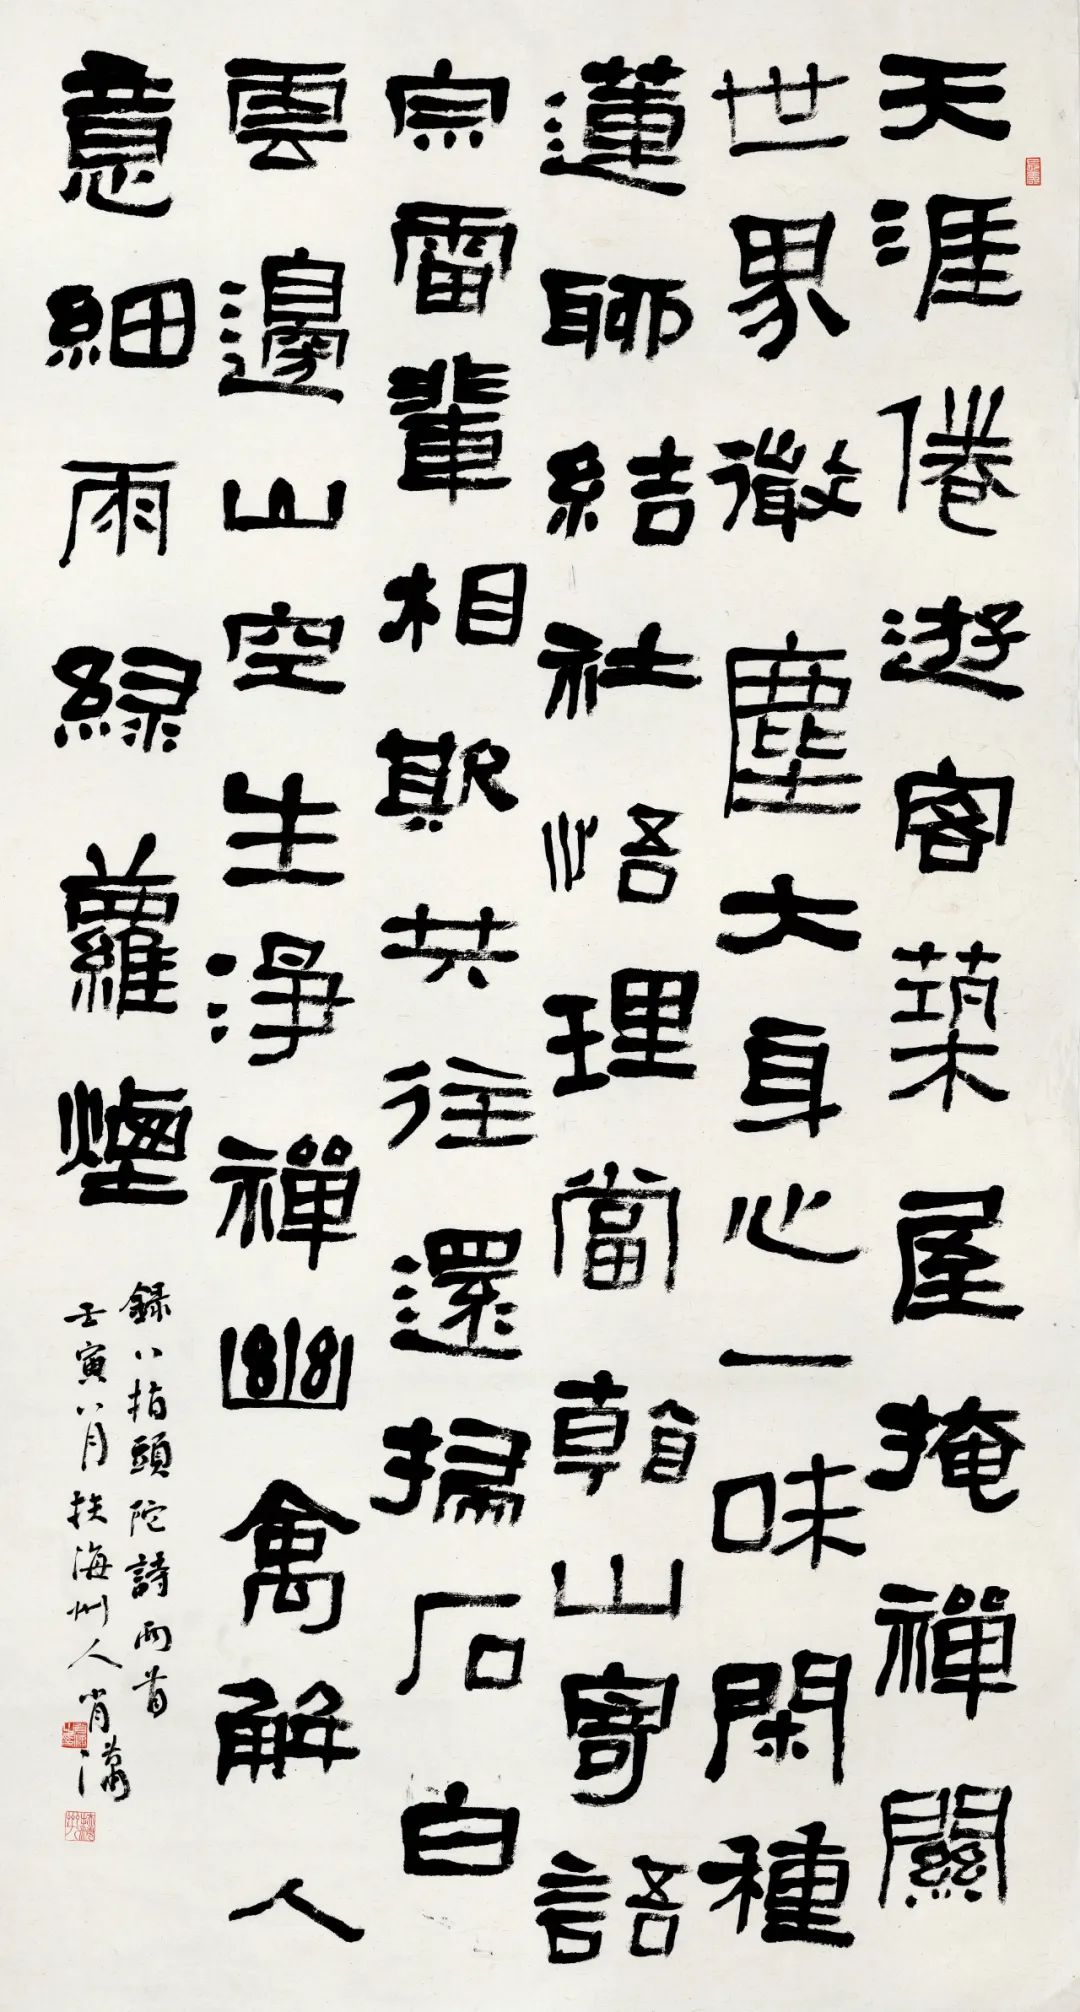 天涯倦遊客築屋掩禪關
世界微塵大身心一味閑種
蓮聊結社悟理當朝山寄語
宗雷輩相期共往還掃石白
雲邊山空生淨禪幽禽解人
意細雨綠蘿煙
録八指頭陀詩兩首
壬寅八月扶海州人肖瀟